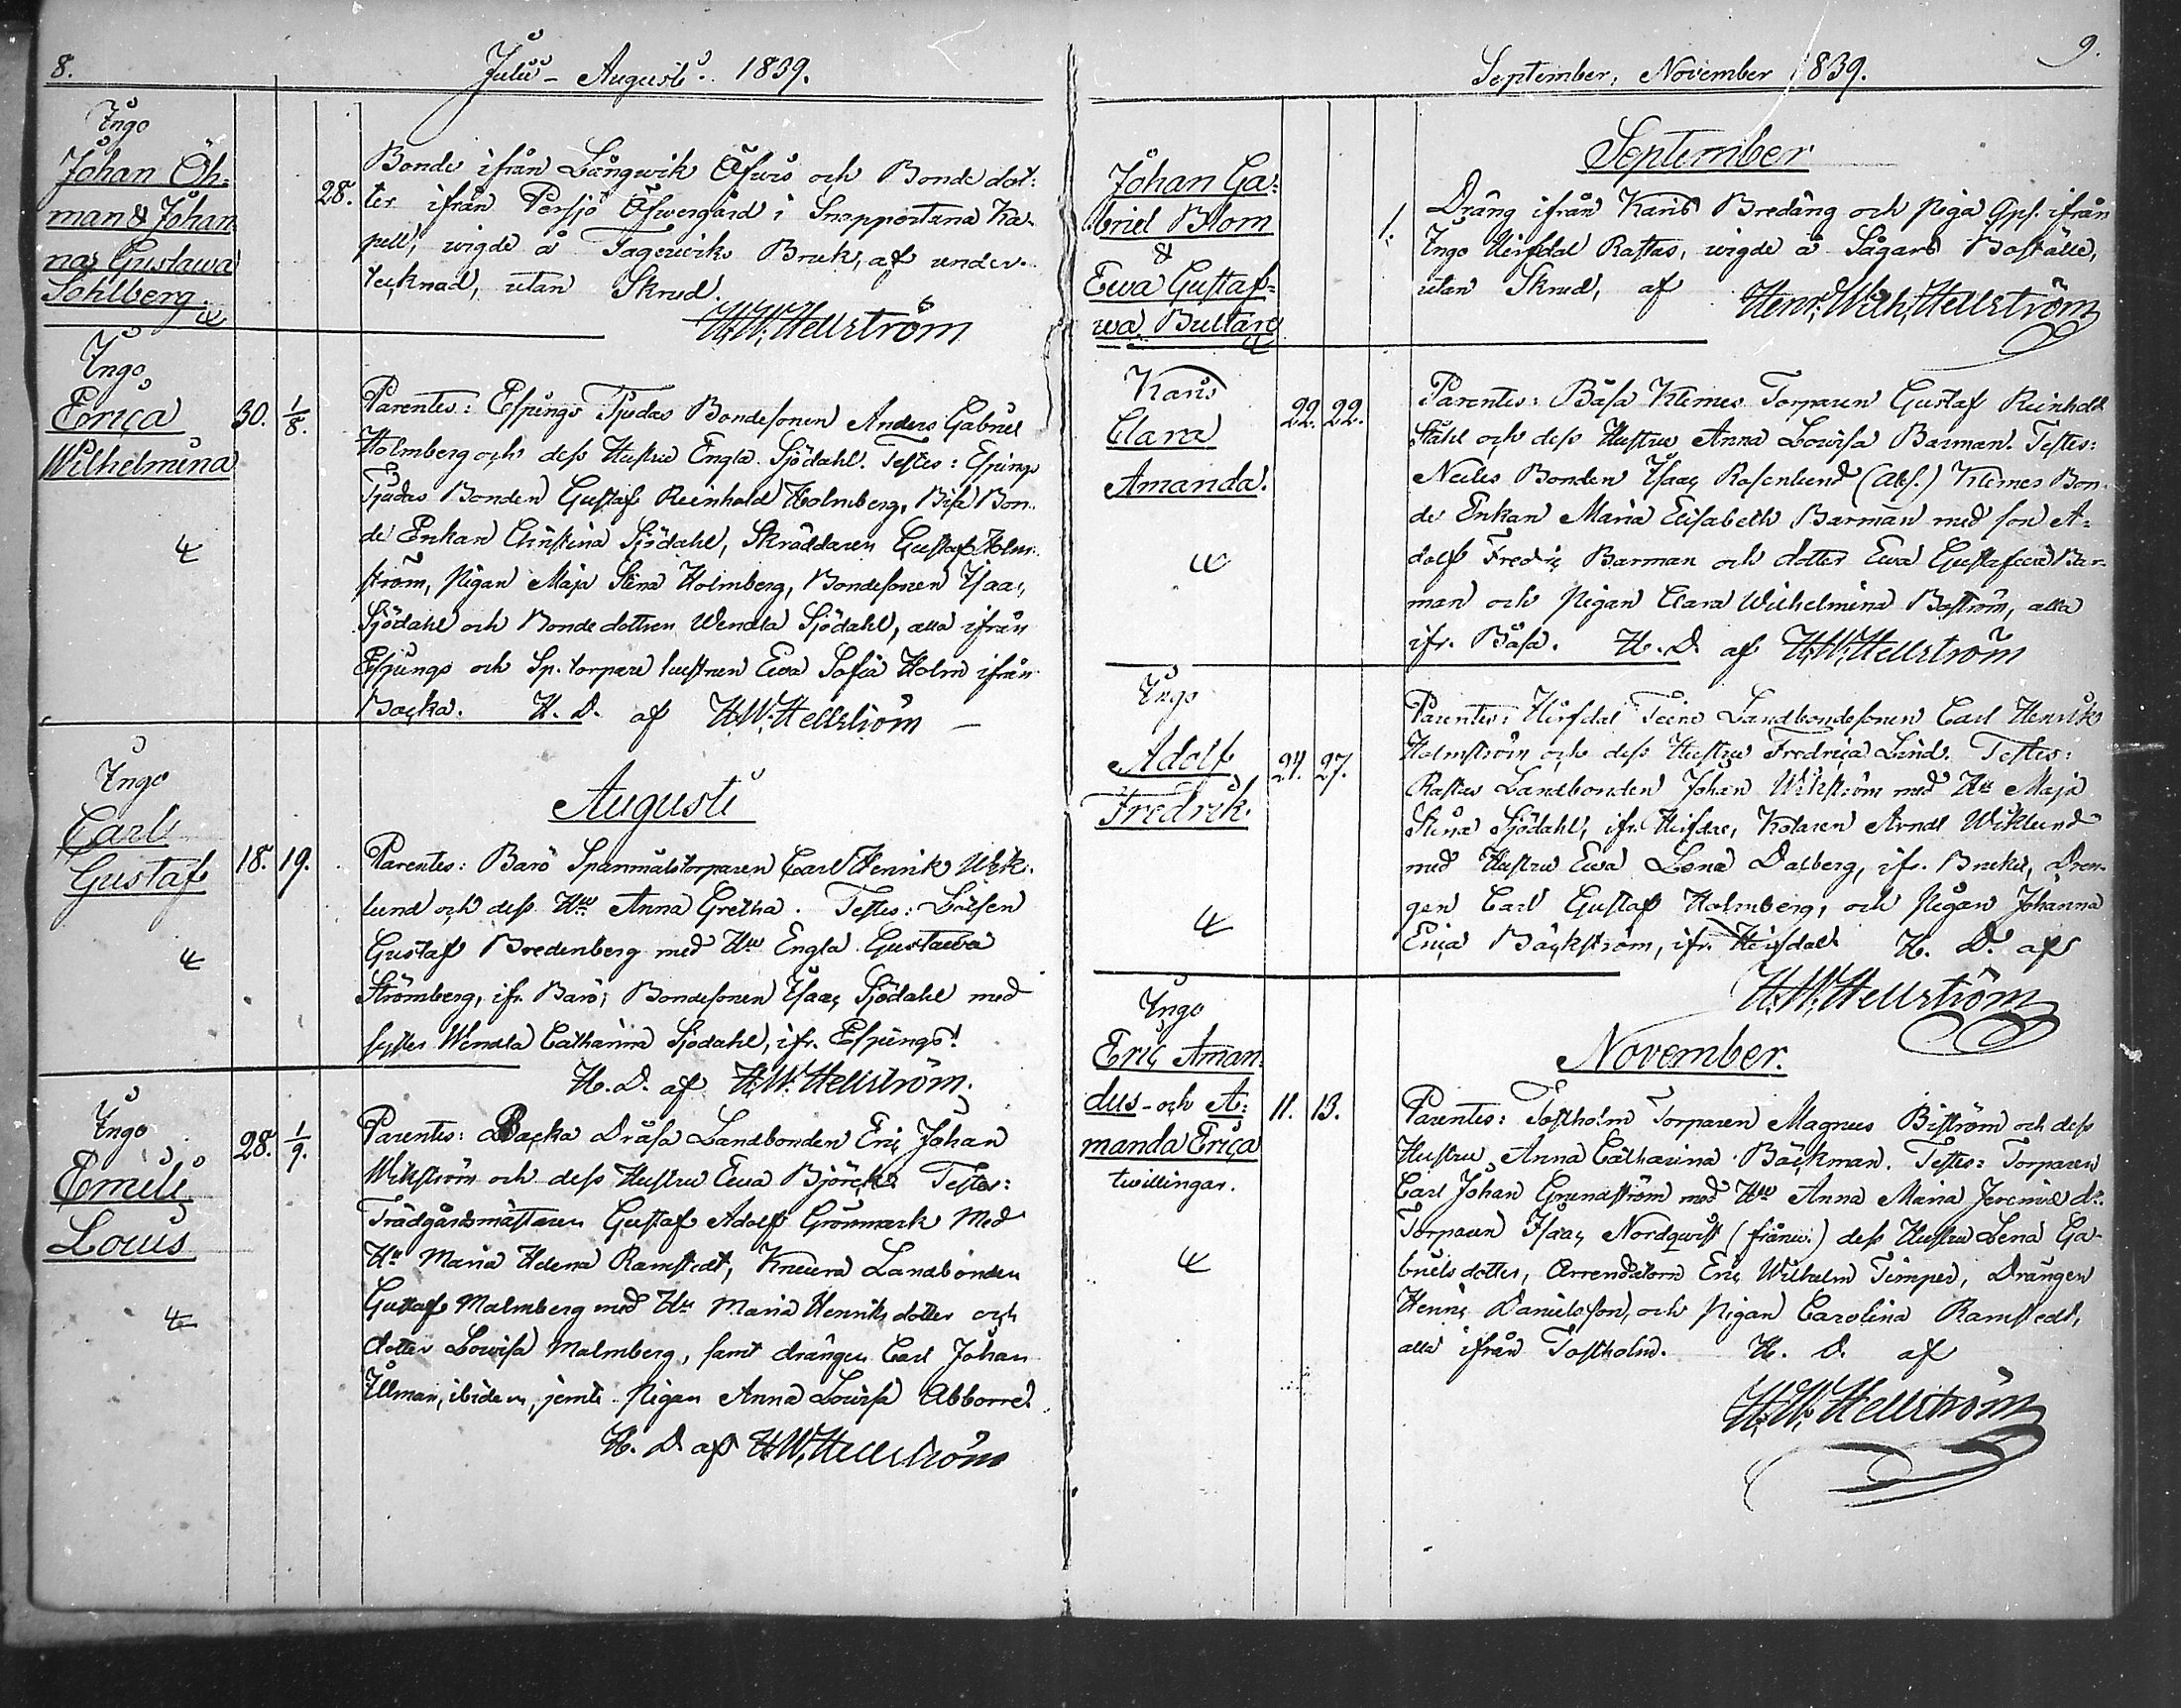 8.
Julii - Augusti. 1839.
Ingo
Johan Öh-
man & Johan
na Gustawa
Sohlberg.
28.
Bonde ifrån Långwik Öfwis och Bonde dot-
ter ifrån Persjö Öfwergård i Snappertuna Ka-
pell, wigde å Fagerwiks Bruk, af under-
tecknad, utan Skrud.
H.W. Hellström
Ingo
Erica
Wilhelmina
30. 1/8.
Parentes: Espings Tjudas Bondesonen Anders Gabriel
Holmberg och dess Hustru Engla Sjödahl. Testes: Espings
Tjudas Bonden Gustaf Reinhold Holmberg, Bisa Bon-
de Enkan Christina Sjödahl, Skräddaren Gustaf Holm-
ström, Pigan Maja Stina Holmberg, Bondesonen Isaac
Sjödahl och Bonde dottren Wendla Sjödahl, alla ifrån
Espings och Sp. torpare hustrun Ewa Sofia Holm ifrån
Backa. H. D. af H.W. Hellström
Augusti
Ingo
Carl
Gustaf
18. 19.
Parentes: Barö Spanmålstorparen Carl Henrik Wik-
lund och dess Hu Anna Gretha. Testes: Båtsen
Gustaf Bredenberg med Hu Engla Gustawa
Strömberg, ifr. Barö; Bondesonen Isaac Sjödahl med
syster Wendla Catharina Sjödahl, ifr. Espings.
H. D. af H.W. Hellström.
Ingo
Emili
Lovis
28. 1/9.
Parentes: Backa Dråsa Landbonden Eric Johan
Wikström och dess Hustru Ewa Björck. Testes:
Trädgårdsmästaren Gustaf Adolf Grönmark Med
Hu Maria Helena Ramstedt, Landbonden
Gustaf Malmberg med Hu Maria Henriksdotter och
dotter Lovisa Malmberg, samt drängen Carl Johan
Ullman, ibidem, jemte Pigan Anna Lovisa Abborre.
H. D. af H.W. Hellström
9.
September, November 1839.
September
Johan Ga-
briel Blom
&
Ewa Gustaf-
wa Bultare
1.
Dräng ifrån Karis Bredäng och Piga Gps. ifrån
Ingo Heifdal Rastas, wigde å Sågars Boställe,
utan Skrud, af Henr. Wilh. Hellström
Karis
Clara
Amanda.
22. 22.
Parentes: Båsa Klemes Torparen Gustaf Reinhold
Ståhl och dess Hustru Anna Lovisa Barman. Testes:
Bonden Isaac Rosenlund (abs.) Klemes Bon-
de Enkan Maria Elisabeth Barman med son A-
dolf Fredric Barman och dotter Ewa Gustafwa Bar-
man och Pigan Clara Wilhelmina Boström, alla
ifr. Båsa. H. D. af H.W. Hellström
Ingo
Adolf
Fredrik
24. 27.
Parentes: Heifdal Landbondesonen Carl Henrik
Holmström och dess Hustru Fredrica Lind. Testes:
Rastas Landbonden Johan Wikström med Hu Maja
Stina Sjödahl, ifr. Heifdal, Kolaren Arndt Wiklund
med Hustru Ewa Lena Dalberg, ifr. Bruket, Dren-
gen Carl Gustaf Holmberg, och Pigan Johanna
Erica Bäckström, ifr. Heifdal H. D. af
H.W. Hellström
November.
Ingo
Eric Aman-
dus - och A-
manda Erica
twillingar.
11. 13.
Parentes: Tostholm Torparen Magnus Biström och dess
Hustru Anna Catharina Bäckman. Testes: Torparen
Carl Johan Grundström med Hu Anna Maria Jeremiæ dr.
Torparen Isaac Nordqwist (frånv.) dess Hustru Lena Ga-
brielsdotter, Arrendatorn Eric Wilhelm Timper, Drängen
Henric Danielsson, och Pigan Carolina Ramstedt,
alla ifrån Tostholm. H. D. af
H.W. Hellström